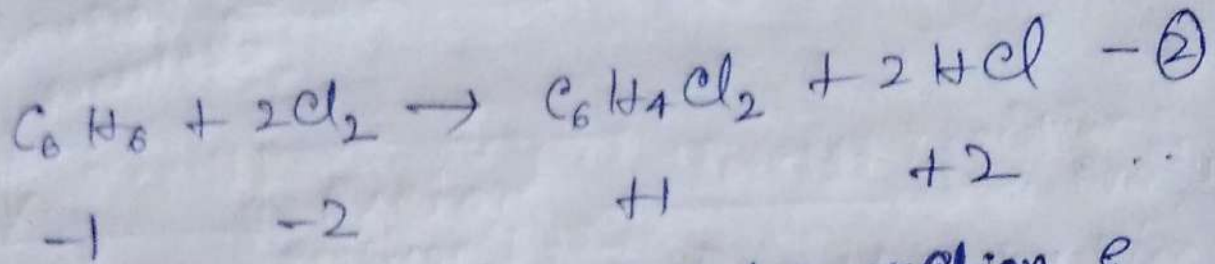 C6H6 + 2Cl2 → C6H4Cl2 + 2HCl - ②
-1 -2 +1 +2